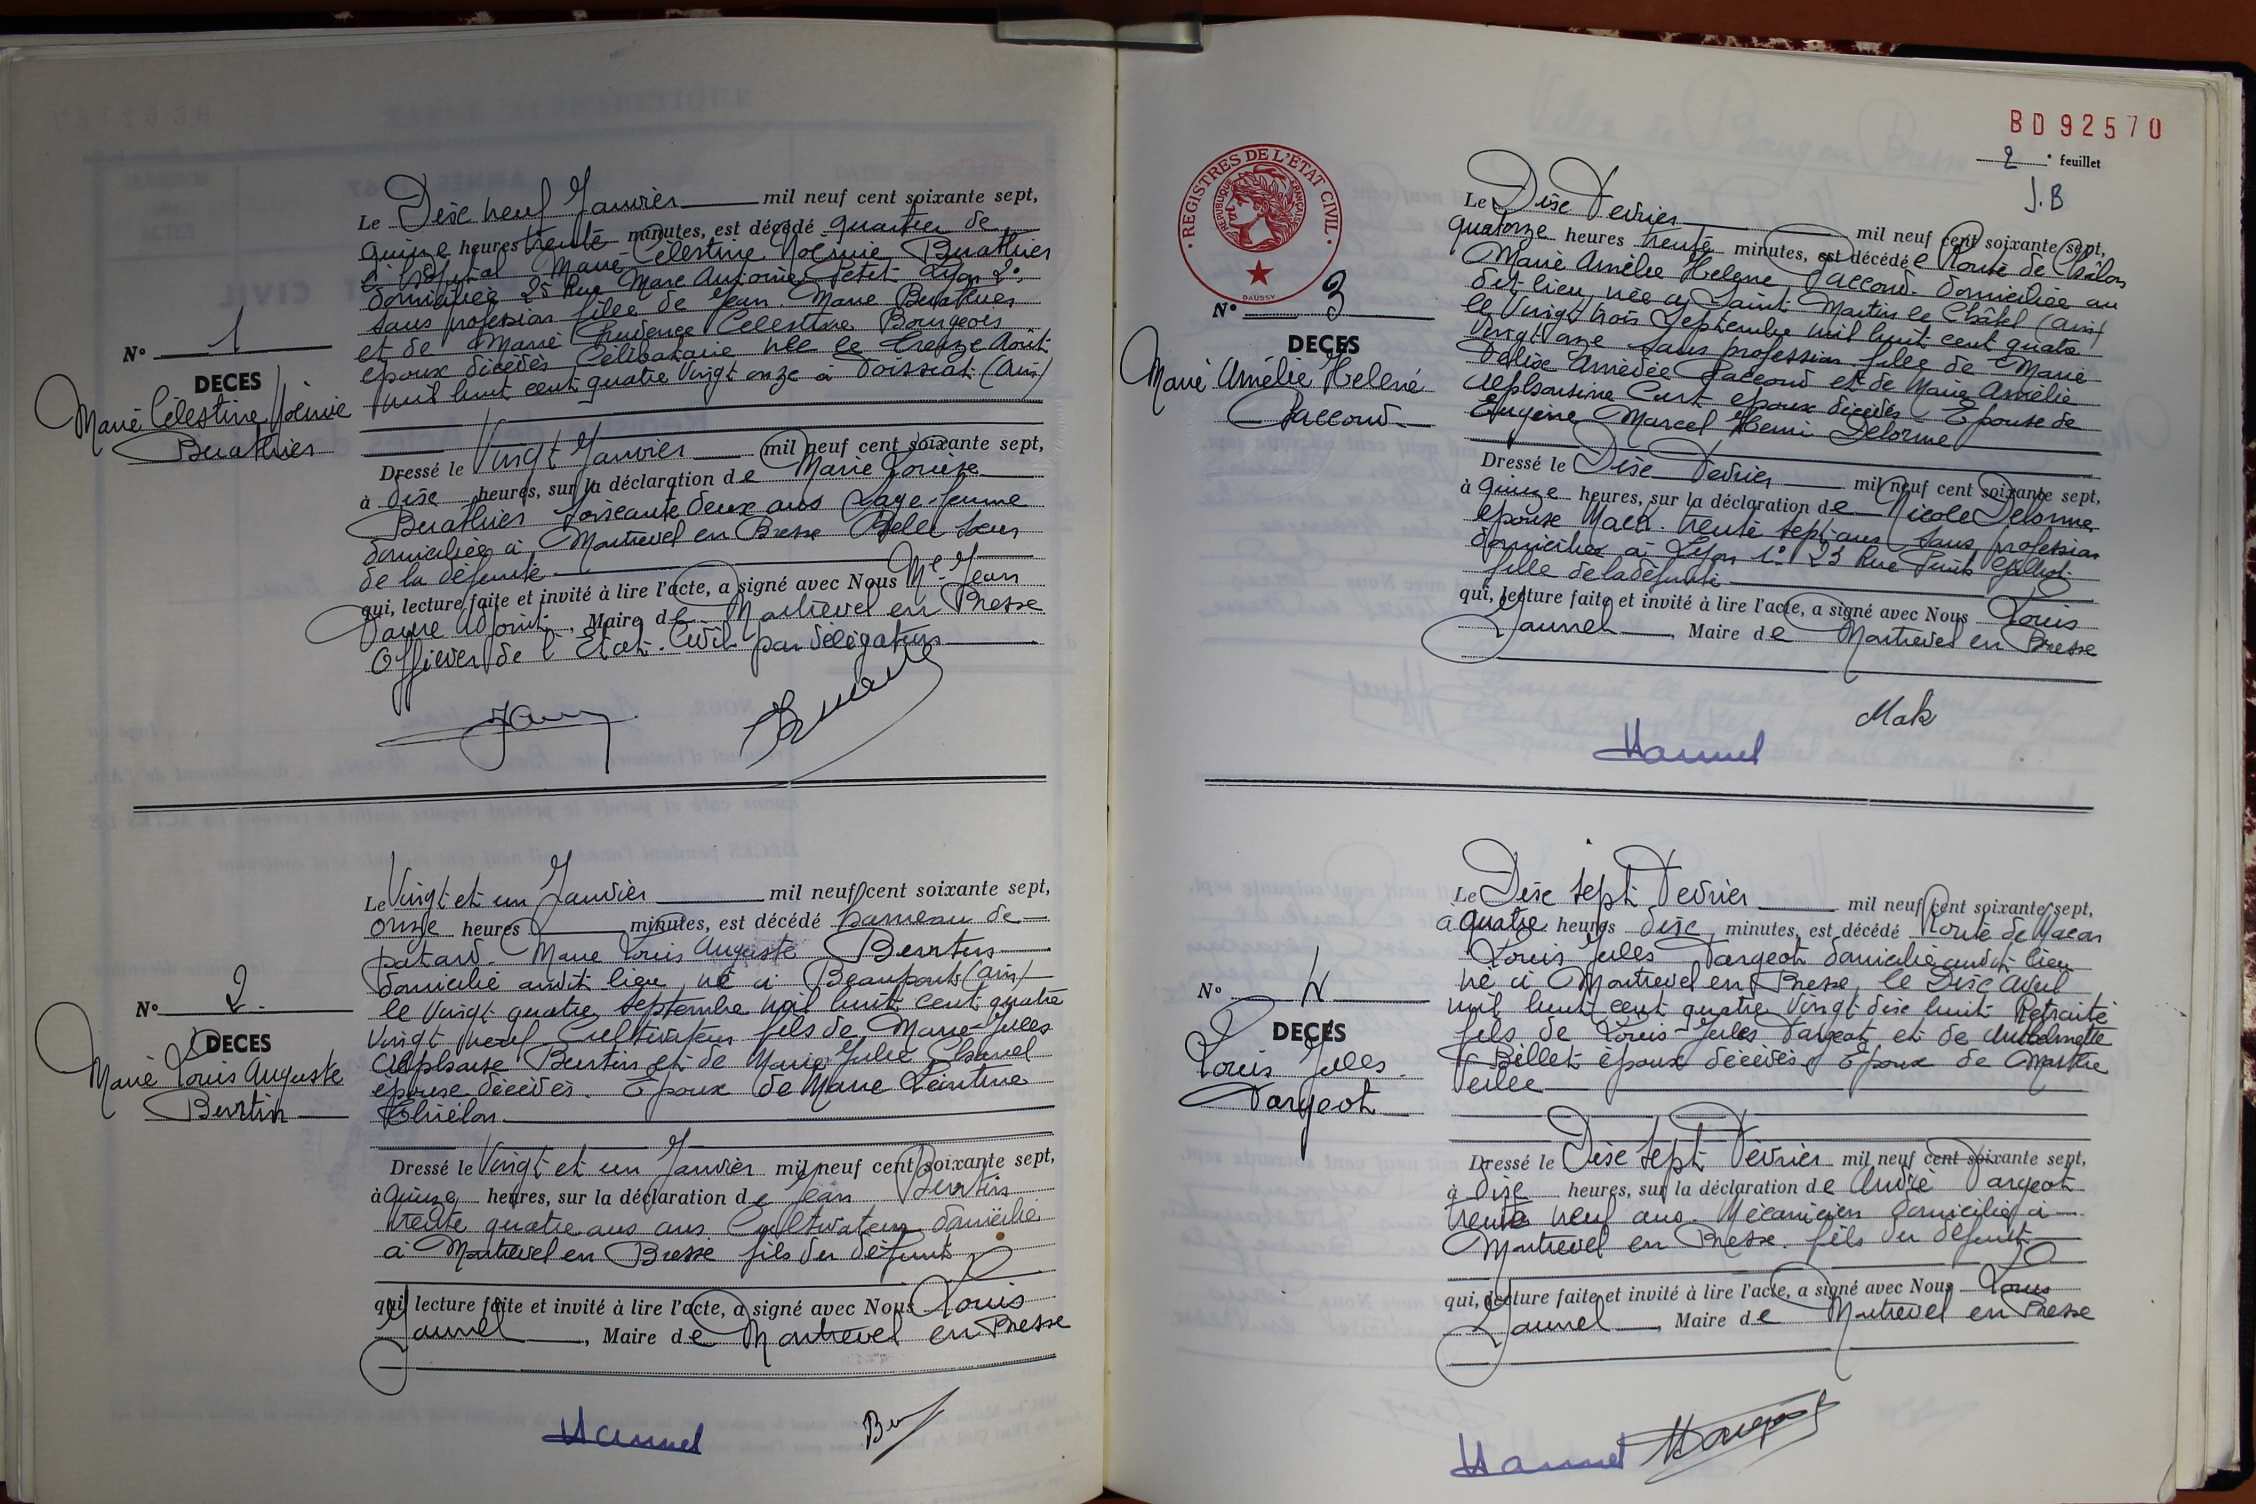 N° 1
DECES
Marie Célestine Noémie
Buathier
Le Dix neuf Janvier mil neuf cent soixante sept,
quinze heures trente minutes, est décédé quartier de
l'hôpital Marie Célestine Noémie Buathier
domiciliée 25 Rue Marc Antoine Petit Lyon 2°,
sans profession fille de Jean Marie Buathier
et de Marie Prudence Célestine Bourgeois
époux décédés Célibataire née le treize Août
mil huit cent quatre vingt onze à Foissiat (Ain)
Dressé le Vingt Janvier mil neuf cent soixante sept,
à dix heures, sur la déclaration de Marie Louise
Buathier soixante deux ans Sage-femme
domiciliée à Montrevel en Bresse Belle Sœur
de la défunte
qui, lecture faite et invité à lire l'acte, a signé avec Nous Mr Jean
Favre Adjoint, Maire de Montrevel en Bresse
Officier de l'Etat-Civil par délégation
N° 2.
DECES
Marie Louis Auguste
Burtin
Le Vingt et un Janvier mil neuf cent soixante sept,
onze heures minutes, est décédé hameau de
patard. Marie Louis Auguste Burtin
domicilié audit lieu né à Beaupont (ain)
le Vingt quatre Septembre mil huit cent quatre
Vingt neuf Cultivateur fils de Marie-Jules
Alphonse Burtin et de Marie Julie Chanel
épouse décédés. Epoux de Marie Léontine
Thiélon
Dressé le Vingt et un Janvier mil neuf cent soixante sept,
à quinze heures, sur la déclaration de Jean Burtin
trente quatre ans ans Cultivateur domicilié
à Montrevel en Bresse fils du défunt
qui, lecture faite et invité à lire l'acte, a signé avec Nous Louis
Jaunel, Maire de Montrevel en Bresse
BD 92570
2° feuillet
J.B
REGISTRES DE L'ÉTAT CIVIL
RÉPUBLIQUE FRANÇAISE
DAUSSY
N° 3
DECES
Marie Amélie Helene
Paccoud
Le Dix Fevrier mil neuf cent soixante sept,
quatorze heures trente minutes, est décédée Route de Châlon
Marie Amélie Helene Paccoud. domiciliée au
dit lieu née à Saint Martin le Châtel (ain)
le Vingt trois Septembre mil huit cent quatre
Vingt onze sans profession fille de Marie
Félix Amédée Paccoud et de Marie Amélie
Alphonsine Curt époux décédés Epouse de
Eugène Marcel Henri Delorme
Dressé le Dix Fevrier mil neuf cent soixante sept,
à quinze heures, sur la déclaration de Nicole Delorme
épouse Mack. trente sept ans sans profession
domiciliée à Lyon 1° 23 Rue Puits Gaillot
fille de la défunte
qui, lecture faite et invité à lire l'acte, a signé avec Nous Louis
Jaunel, Maire de Montrevel en Bresse
Mak
N° 4
DECES
Louis Jules
Fargeot
Le Dix sept Fevrier mil neuf cent soixante sept,
a quatre heures dix minutes, est décédé Route de Macon
Louis Jules Fargeot domicilié audit lieu
né à Montrevel en Bresse, le Dix avril
mil huit cent quatre Vingt dix huit Retraité
fils de Louis Jules Fargeot et de Anthelmette
Billet époux décédés Epoux de Marthe
Dressé le Dix sept Février mil neuf cent soixante sept,
à Dix heures, sur la déclaration de André Fargeot
trente neuf ans. Mécanicien domicilié à
Montrevel en Bresse. fils du défunt
qui, lecture faite et invité à lire l'acte, a signé avec Nous Louis
Jaunel, Maire de Montrevel en Bresse